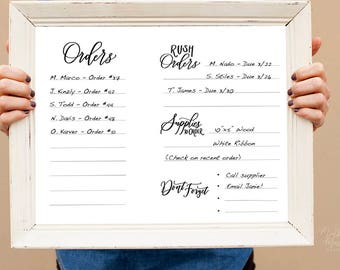 Orders
M. Marco - Order #37
J. Kinzly - Order #42
S. Todd - Order #44
N. Davis - Order #48
O. Karver - Order #10
RUSH
Orders
M. Nako - Due 3/22
S. Stiles - Due 3/26
T. James - Due 3/30
Supplies
to Order
10"x5" Wood
White Ribbon
(Check on recent order)
Don't Forget
• Call supplier
• Email Jane!